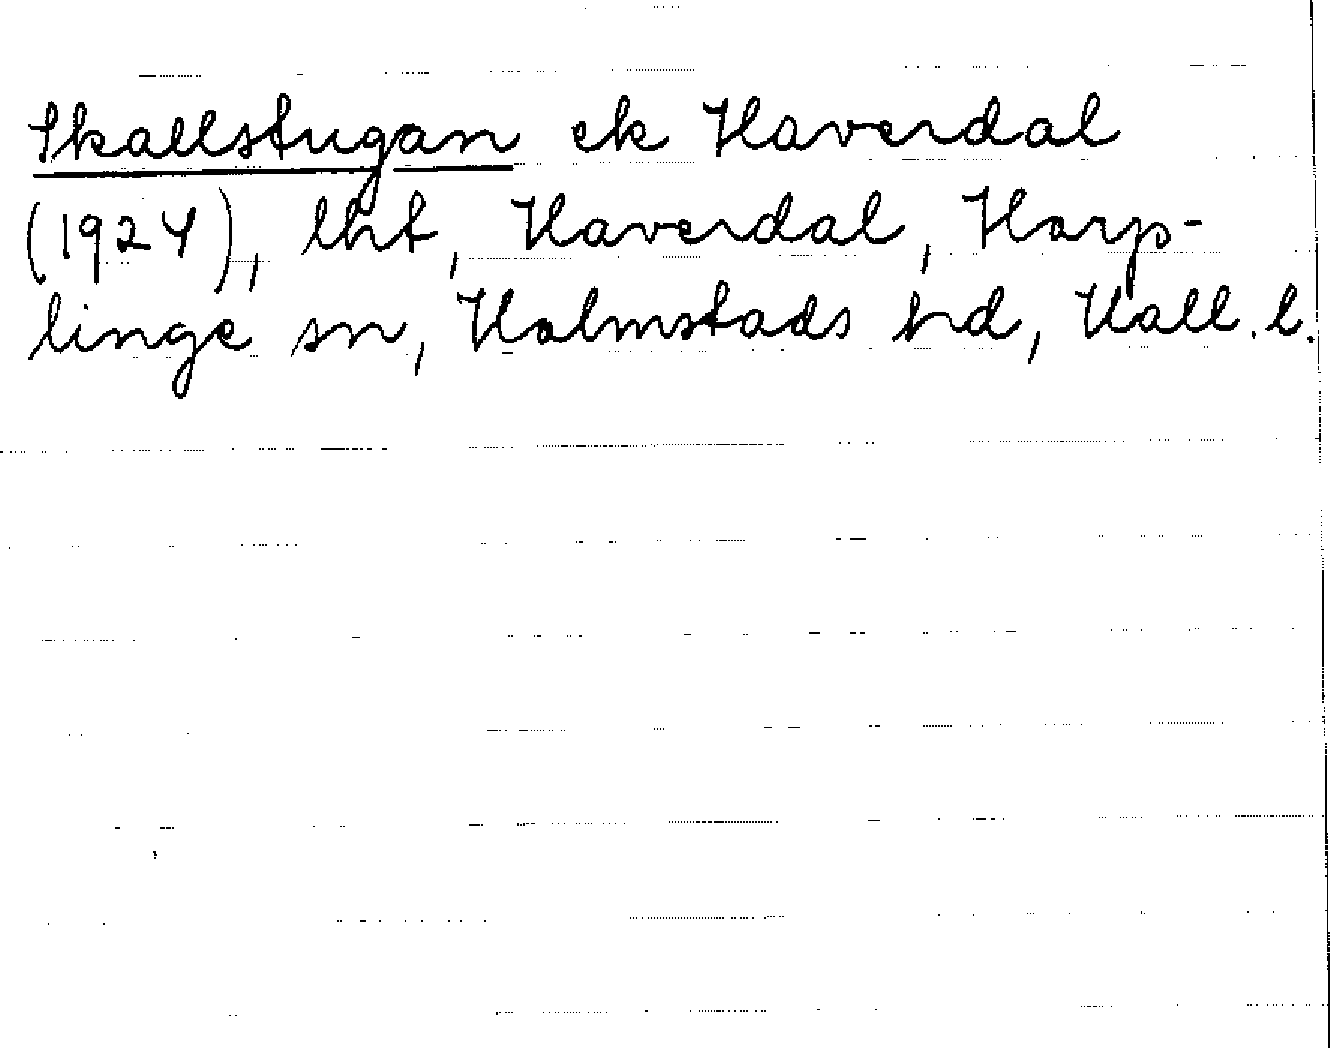 Skallstugan ek Haverdal
(1924), lht, Haverdal, Harp-
linge sn, Halmstads hd, Hall. l.